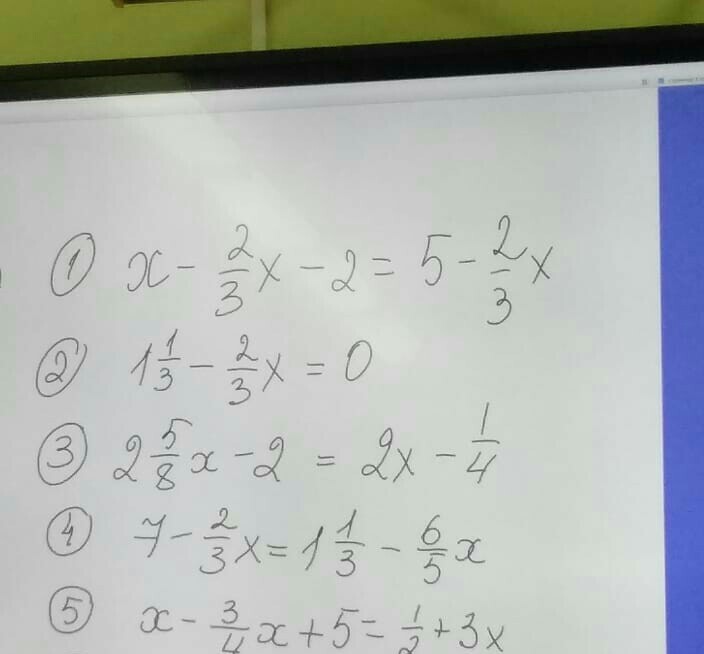 ① x - 2/3 x - 2 = 5 - 2/3 x
② 1 1/3 - 2/3 x = 0
③ 2 5/8 x - 2 = 2x - 1/4
④ 7 - 2/3 x = 1 1/3 - 6/5 x
⑤ x - 3/4 x + 5 = 1/2 + 3x